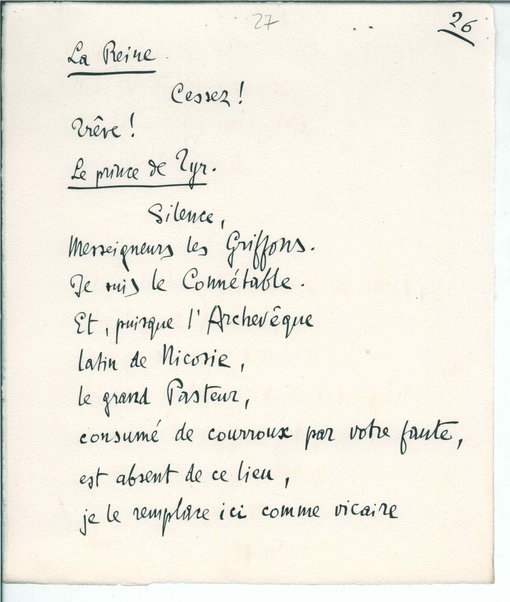 27
26
La Reine.
Cessez!
Trêve!
Le prince de Tyr.
Silence,
Messeigneurs les Griffons.
Je suis le Connétable.
Et, puisque l'Archevêque
latin de Nicosie,
le grand Pasteur,
consumé de courroux par votre faute,
est absent de ce lieu,
je le remplace ici comme vicaire